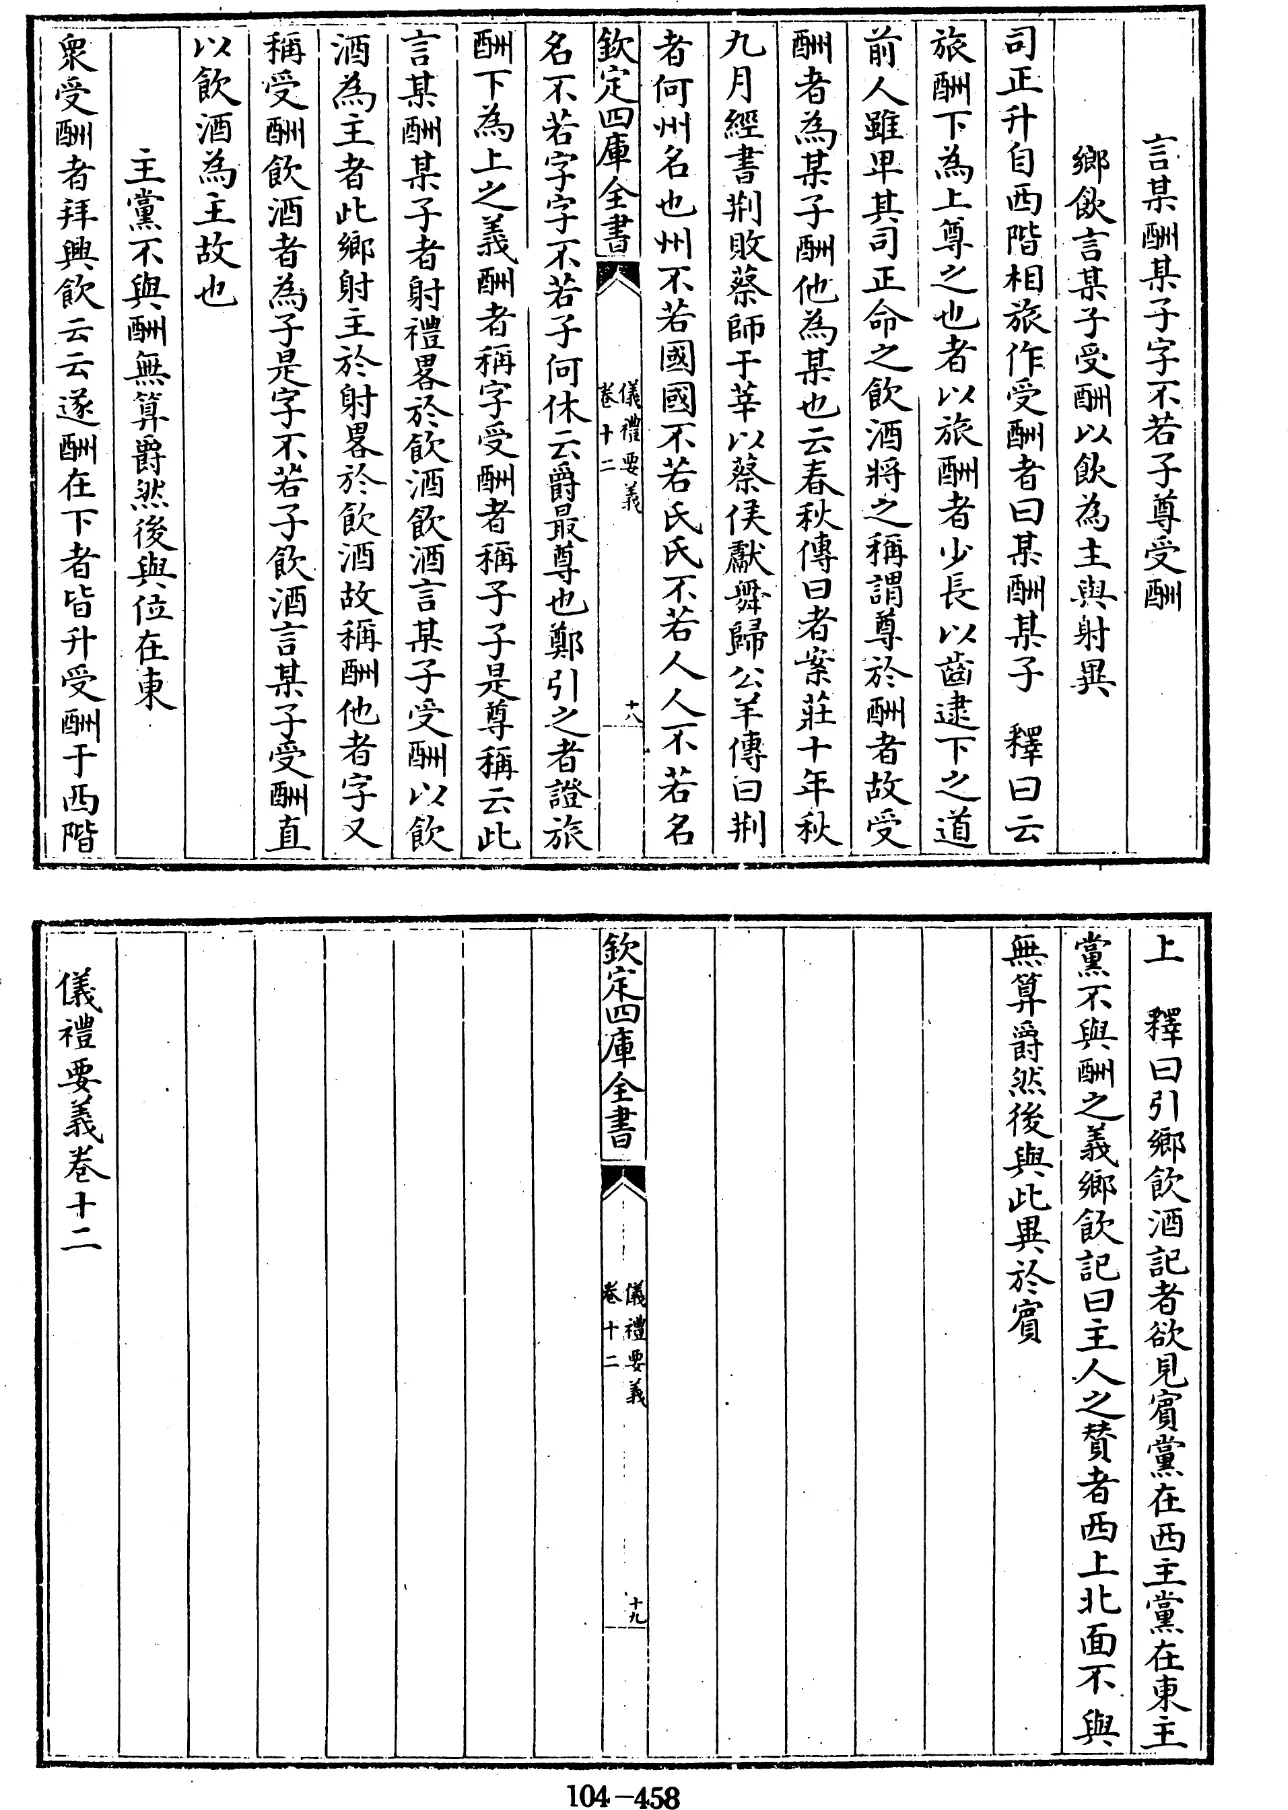 言某酬某子字不若子尊受酬
鄉飲言某子受酬以飲為主與射異
司正升自西階相旅作受酬者曰某酬某子　釋曰云
旅酬下為上尊之也者以旅酬者少長以齒逮下之道
前人雖卑其司正命之飲酒將之稱謂尊於酬者故受
酬者為某子酬他為某也云春秋傳曰者案莊十年秋
九月經書荆敗蔡師于莘以蔡侯獻舞歸公羊傳曰荆
者何州名也州不若國國不若氏氏不若人人不若名
欽定四庫全書
儀禮要義
卷十二
十八
名不若字字不若子何休云爵最尊也鄭引之者證旅
酬下為上之義酬者稱字受酬者稱子子是尊稱云此
言某酬某子者射禮畧於飲酒飲酒言某子受酬以飲
酒為主者此鄉射主於射畧於飲酒故稱酬他者字又
稱受酬飲酒者為子是字不若子飲酒言某子受酬直
以飲酒為主故也
主黨不與酬無算爵然後與位在東
衆受酬者拜興飲云云遂酬在下者皆升受酬于西階
上　釋曰引鄉飲酒記者欲見賓黨在西主黨在東主
黨不與酬之義鄉飲記曰主人之贊者西上北面不與
無算爵然後與此異於賓
欽定四庫全書
儀禮要義
卷十二
十九
儀禮要義卷十二
104-458